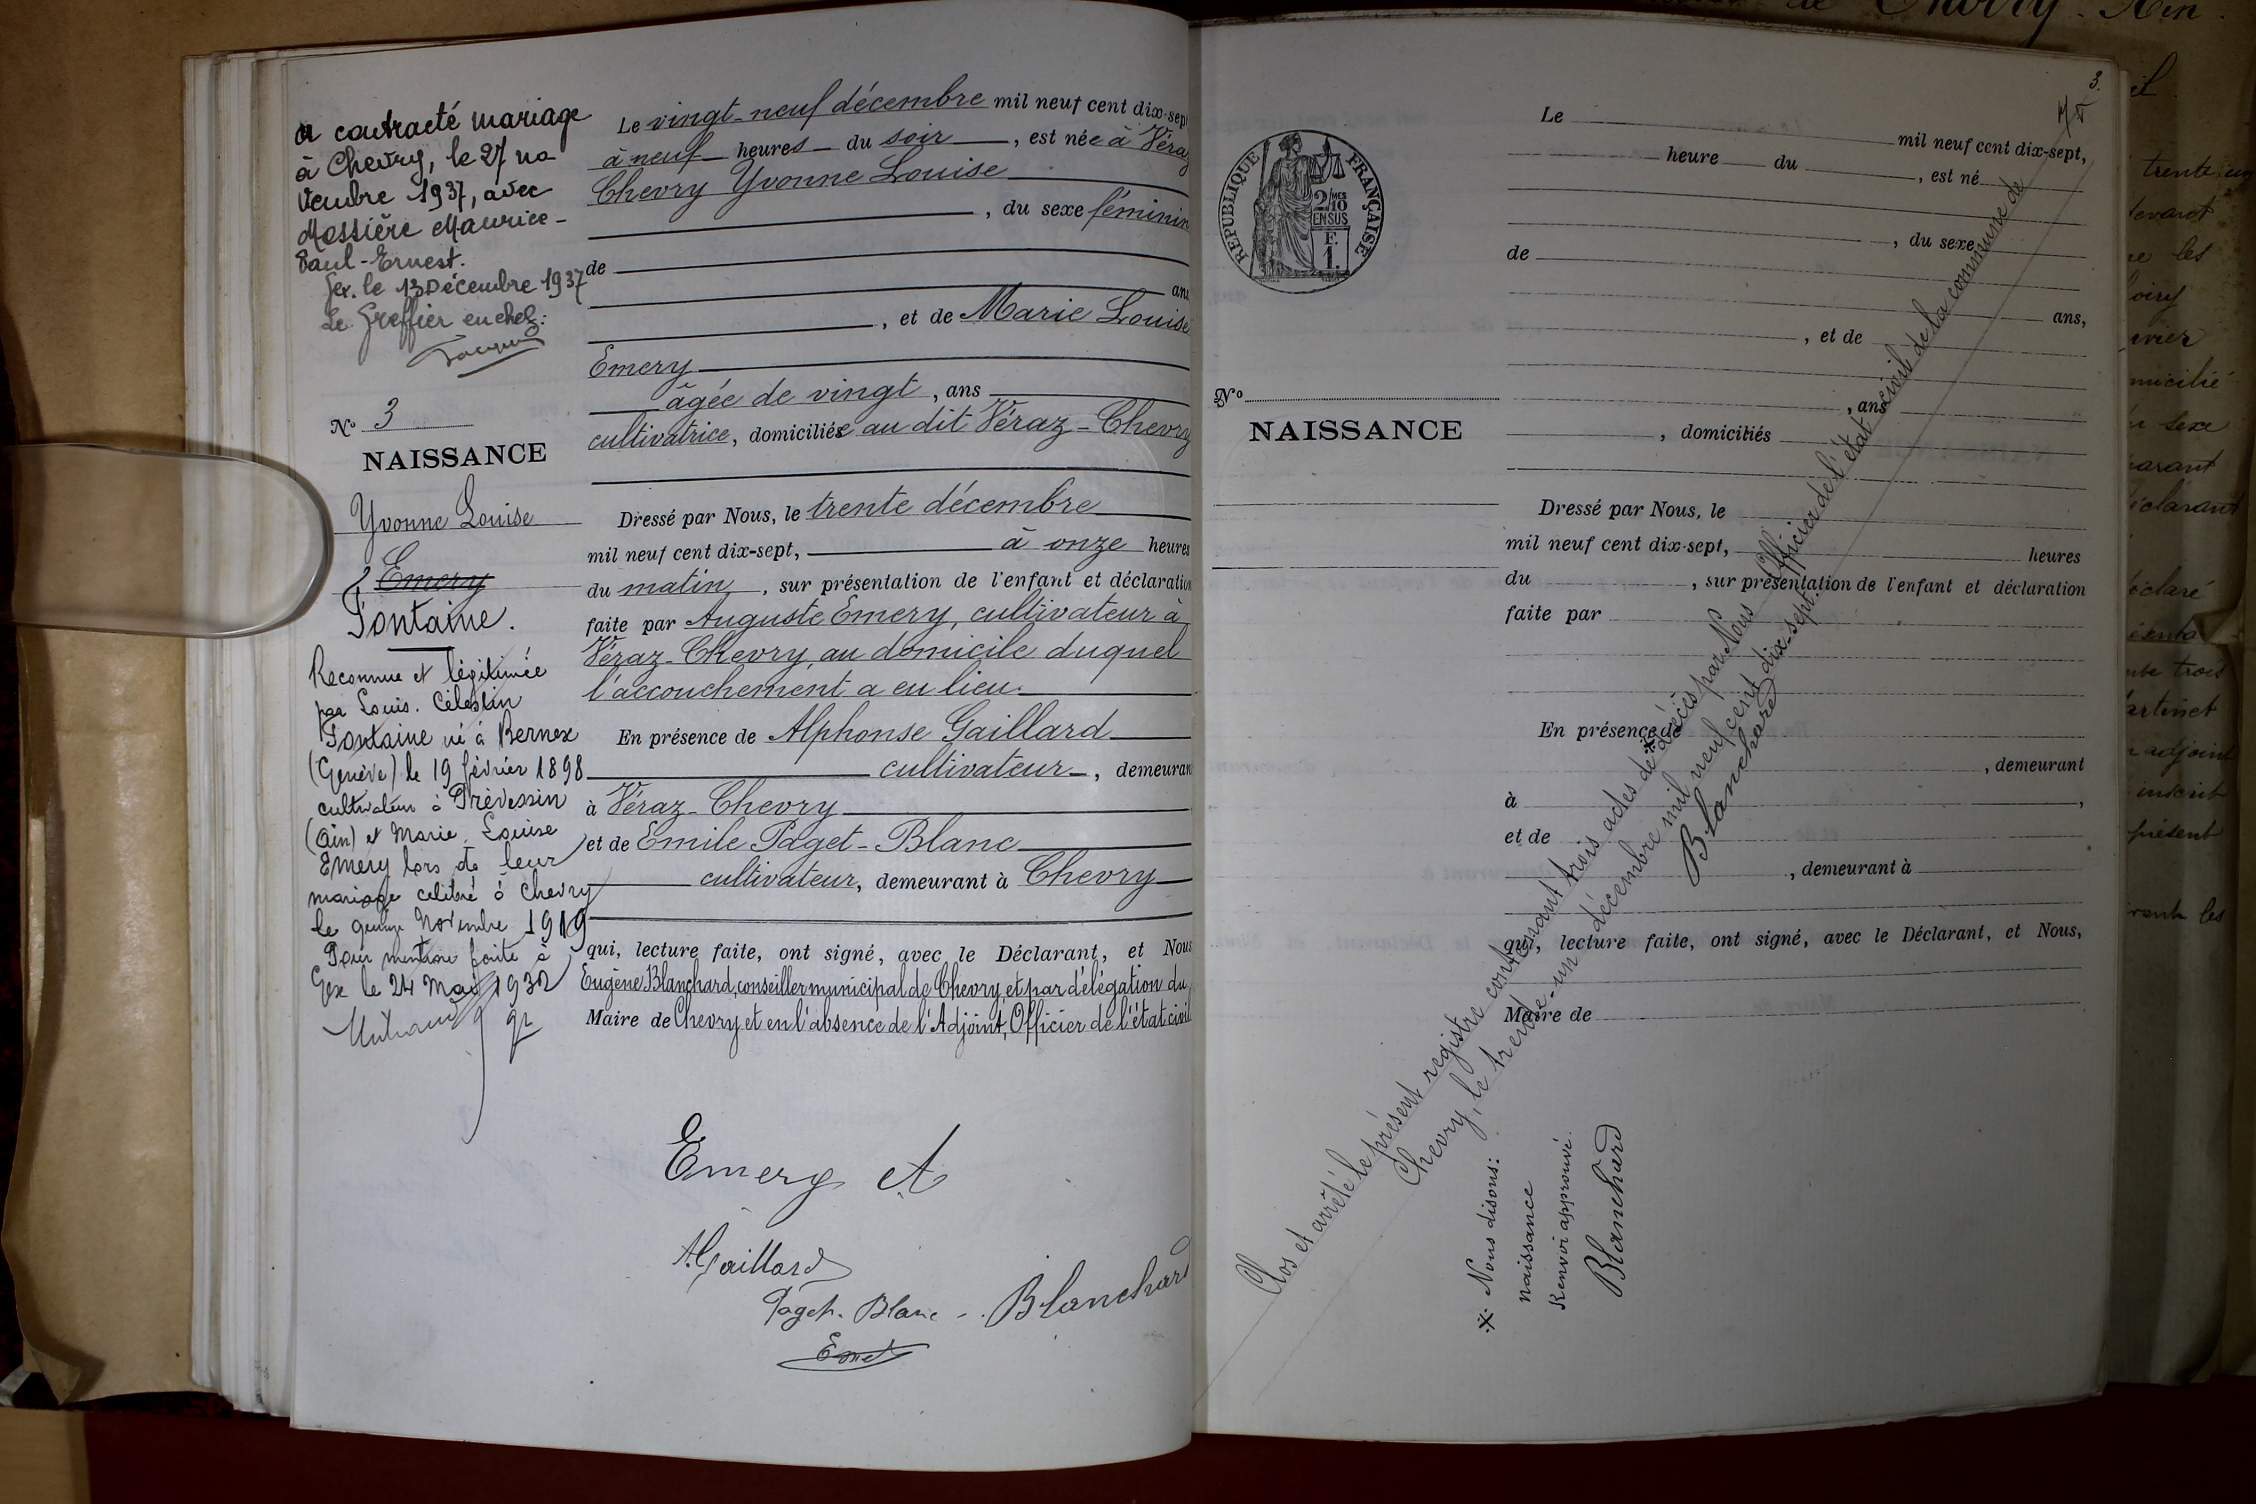 a contracté mariage
à Chevry, le 27 no
vembre 1937, avec
Mossière Maurice-
Paul-Ernest.
Gex. le 13 Décembre 1937
Le Greffier en chef:
No 3
NAISSANCE
Yvonne Louise
Emery
Fontaine.
Reconnue et légitimée
par Louis. Célestin
Fontaine né à Bernex
(Genève) le 19 février 1898
cultivateur à Prévessin
(Ain) et Marie. Louise
Emery lors de leur
mariage célébré à Chevry
le quinze Novembre 1919
Pour mention faite à
Gex le 24 Mai 1932
Le vingt-neuf décembre mil neuf cent dix-sept
à neuf heures du soir, est née à Véraz
Chevry Yvonne Louise
, du sexe féminin
de
ans
, et de Marie Louise
Emery
âgée de vingt, ans
cultivatrice, domiciliée au dit Véraz-Chevry
Dressé par Nous, le trente décembre
mil neuf cent dix-sept, à onze heures
du matin, sur présentation de l'enfant et déclaration
faite par Auguste Emery, cultivateur à
Véraz-Chevry, au domicile duquel
l'accouchement a eu lieu.
En présence de Alphonse Gaillard
cultivateur, demeurant
à Véraz-Chevry
et de Emile Paget-Blanc
cultivateur, demeurant à Chevry
qui, lecture faite, ont signé, avec le Déclarant, et Nous
Eugène Blanchard, conseiller municipal de Chevry, et par délégation du
Maire de Chevry et en l'absence de l'Adjoint, Officier de l'état civil
Emery A
A. Gaillard
Paget-Blanc
Blanchard
3.
RÉPUBLIQUE FRANÇAISE
2/10MES
EN SUS
F.
1.
No
NAISSANCE
Le
mil neuf cent dix-sept,
heure du , est né
, du sexe
de
ans,
, et de
, ans
, domiciliés
Dressé par Nous, le
mil neuf cent dix-sept, heures
du , sur présentation de l'enfant et déclaration
faite par
En présence de
, demeurant
à ,
et de
, demeurant à
qui, lecture faite, ont signé, avec le Déclarant, et Nous,
Maire de
Clos et arrêté le présent registre contenant trois actes de * décès par Nous Officier de l'état civil de la commune de
Chevry, le trente-un décembre mil neuf cent dix-sept.
Blanchard
* Nous disons:
naissance
Renvoi approuvé.
Blanchard